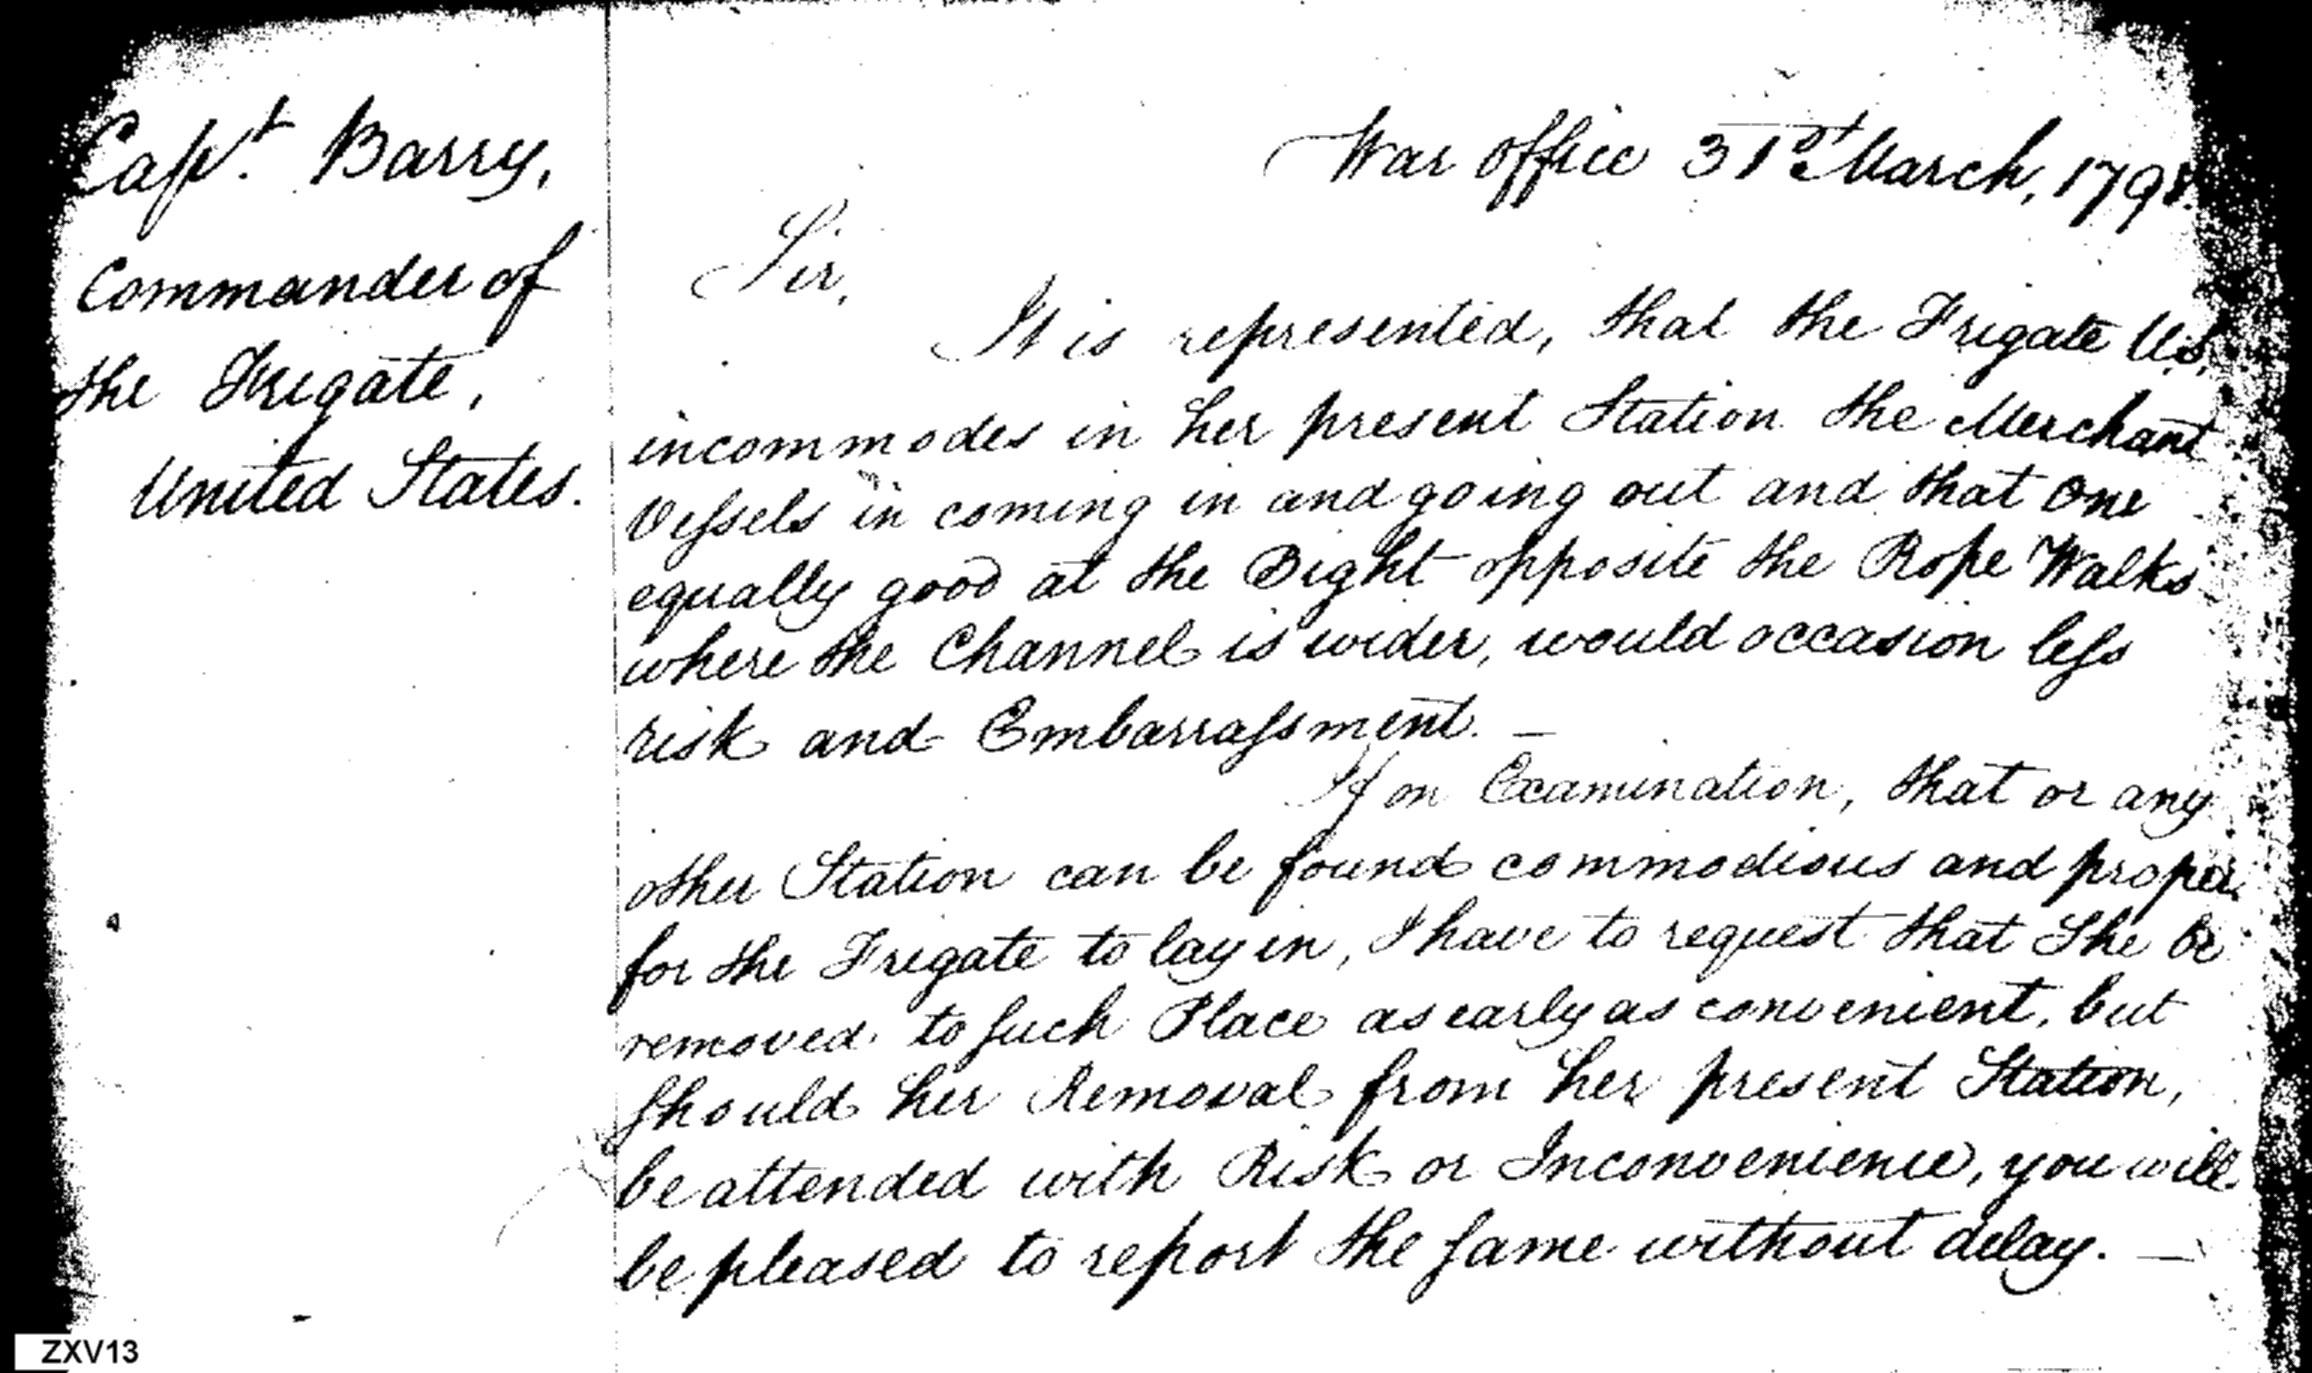 Capt. Barry,
Commander of
the Frigate,
United States.
War office 31st March, 1798.
Sir,
It is represented, that the Frigate U.S.
incommodes in her present Station the Merchant
Veſsels in coming in and going out and that one
equally good at the Bight opposite the Rope Walks
where the Channel is wider, would occasion leſs
risk and Embarraſsment. —
If on Examination, that or any
other Station can be found commodious and proper
for the Frigate to lay in, I have to request that She be
removed to ſuch Place as early as convenient, but
ſhould her Removal from her present Station,
be attended with Risk or Inconvenience, you will
be pleased to report the ſame without delay. —
ZXV13